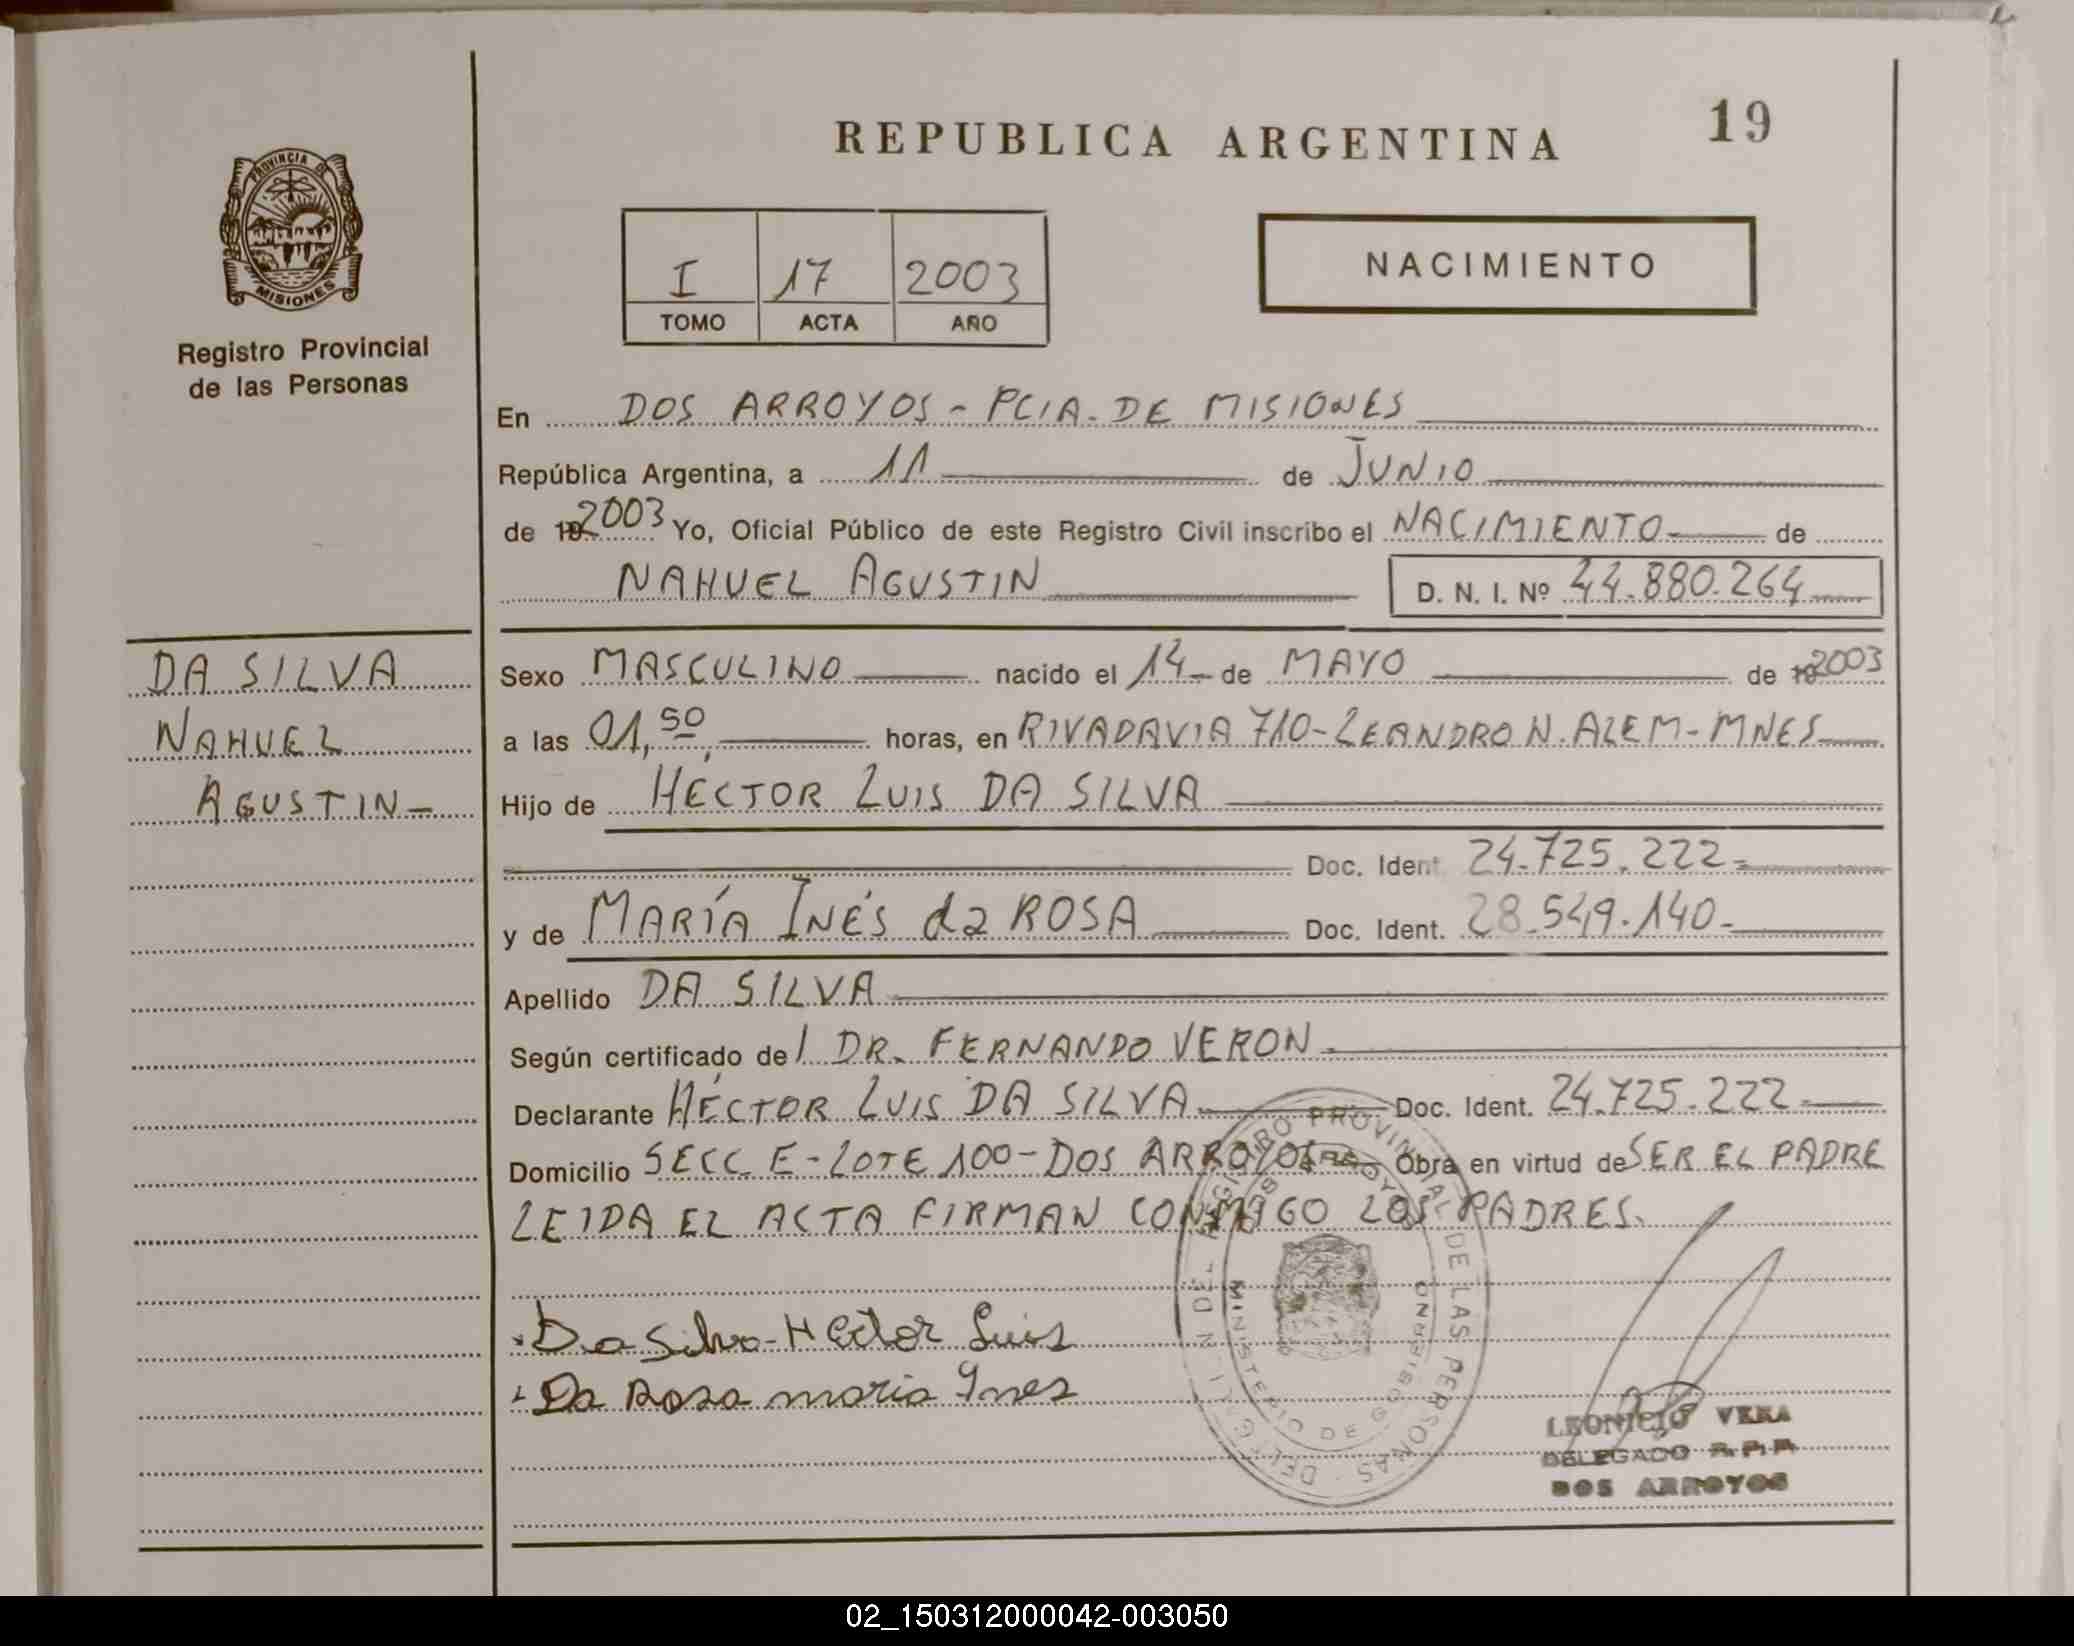 REPUBLICA ARGENTINA
19
PROVINCIA DE
MISIONES
Registro Provincial
de las Personas
I 17 2003
TOMO ACTA AÑO
NACIMIENTO
En DOS ARROYOS - PCIA. DE MISIONES
República Argentina, a 11 de JUNIO
de 19 2003 Yo, Oficial Público de este Registro Civil inscribo el NACIMIENTO de
NAHUEL AGUSTIN D. N. I. Nº 44.880.264
DA SILVA
NAHUEL
AGUSTIN -
Sexo MASCULINO nacido el 14 de MAYO de 19 2003
a las 01,50 horas, en RIVADAVIA 710 - LEANDRO N. ALEM - MNES
Hijo de HÉCTOR LUIS DA SILVA
Doc. Ident. 24.725.222
y de MARÍA INÉS da ROSA Doc. Ident. 28.549.140
Apellido DA SILVA
Según certificado del DR. FERNANDO VERON
Declarante HÉCTOR LUIS DA SILVA Doc. Ident. 24.725.222
Domicilio SECC E - LOTE 100 - DOS ARROYOS Obra en virtud de SER EL PADRE
LEIDA EL ACTA FIRMAN CONMIGO LOS PADRES.
Da Silva - Hector Luis
Da Rosa maria Ines
REGISTRO PROVINCIAL DE LAS PERSONAS
DOS ARROYOS
MINISTERIO DE GOBIERNO
LEONICIO VERA
DELEGADO R.P.P.
DOS ARROYOS
02_150312000042-003050